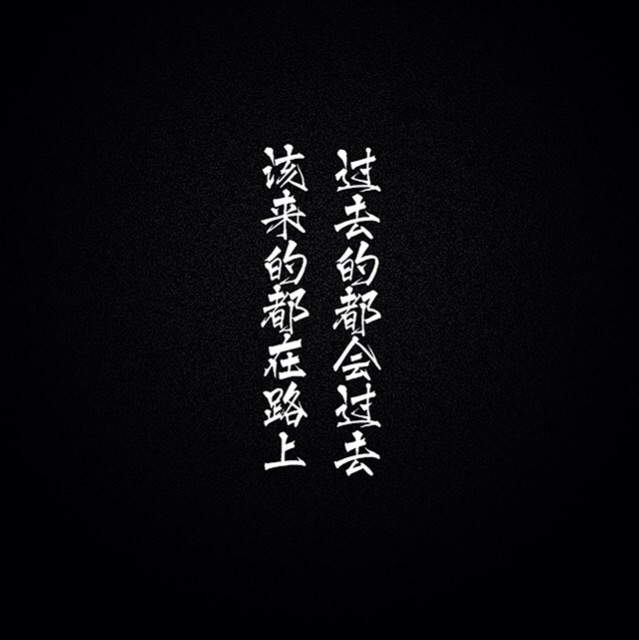 过去的都会过去
该来的都在路上